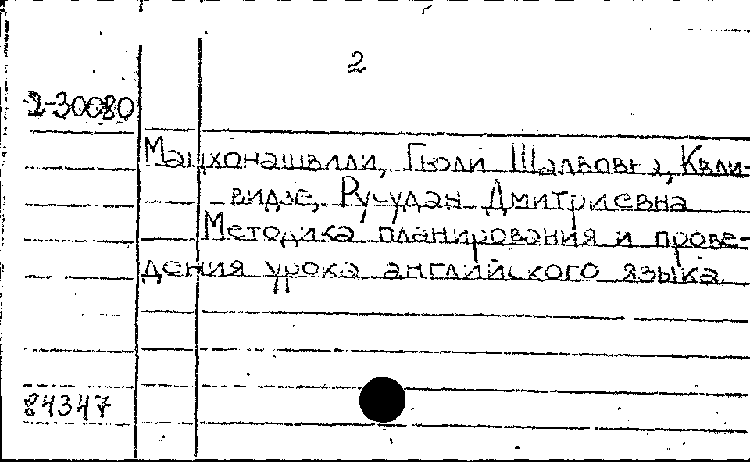 2
2-30080
Мацхонашвили, Гюли Шалвовна, Квли-
видзе, Русудан Дмитриевна
Методика планирования и прове-
дения урока английского языка
84347